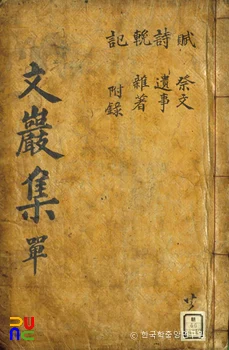 賦 祭文
詩 遺事
輓 雜著
記 附錄
文巖集 單
共
UNC
ⓒ 한국학중앙연구원